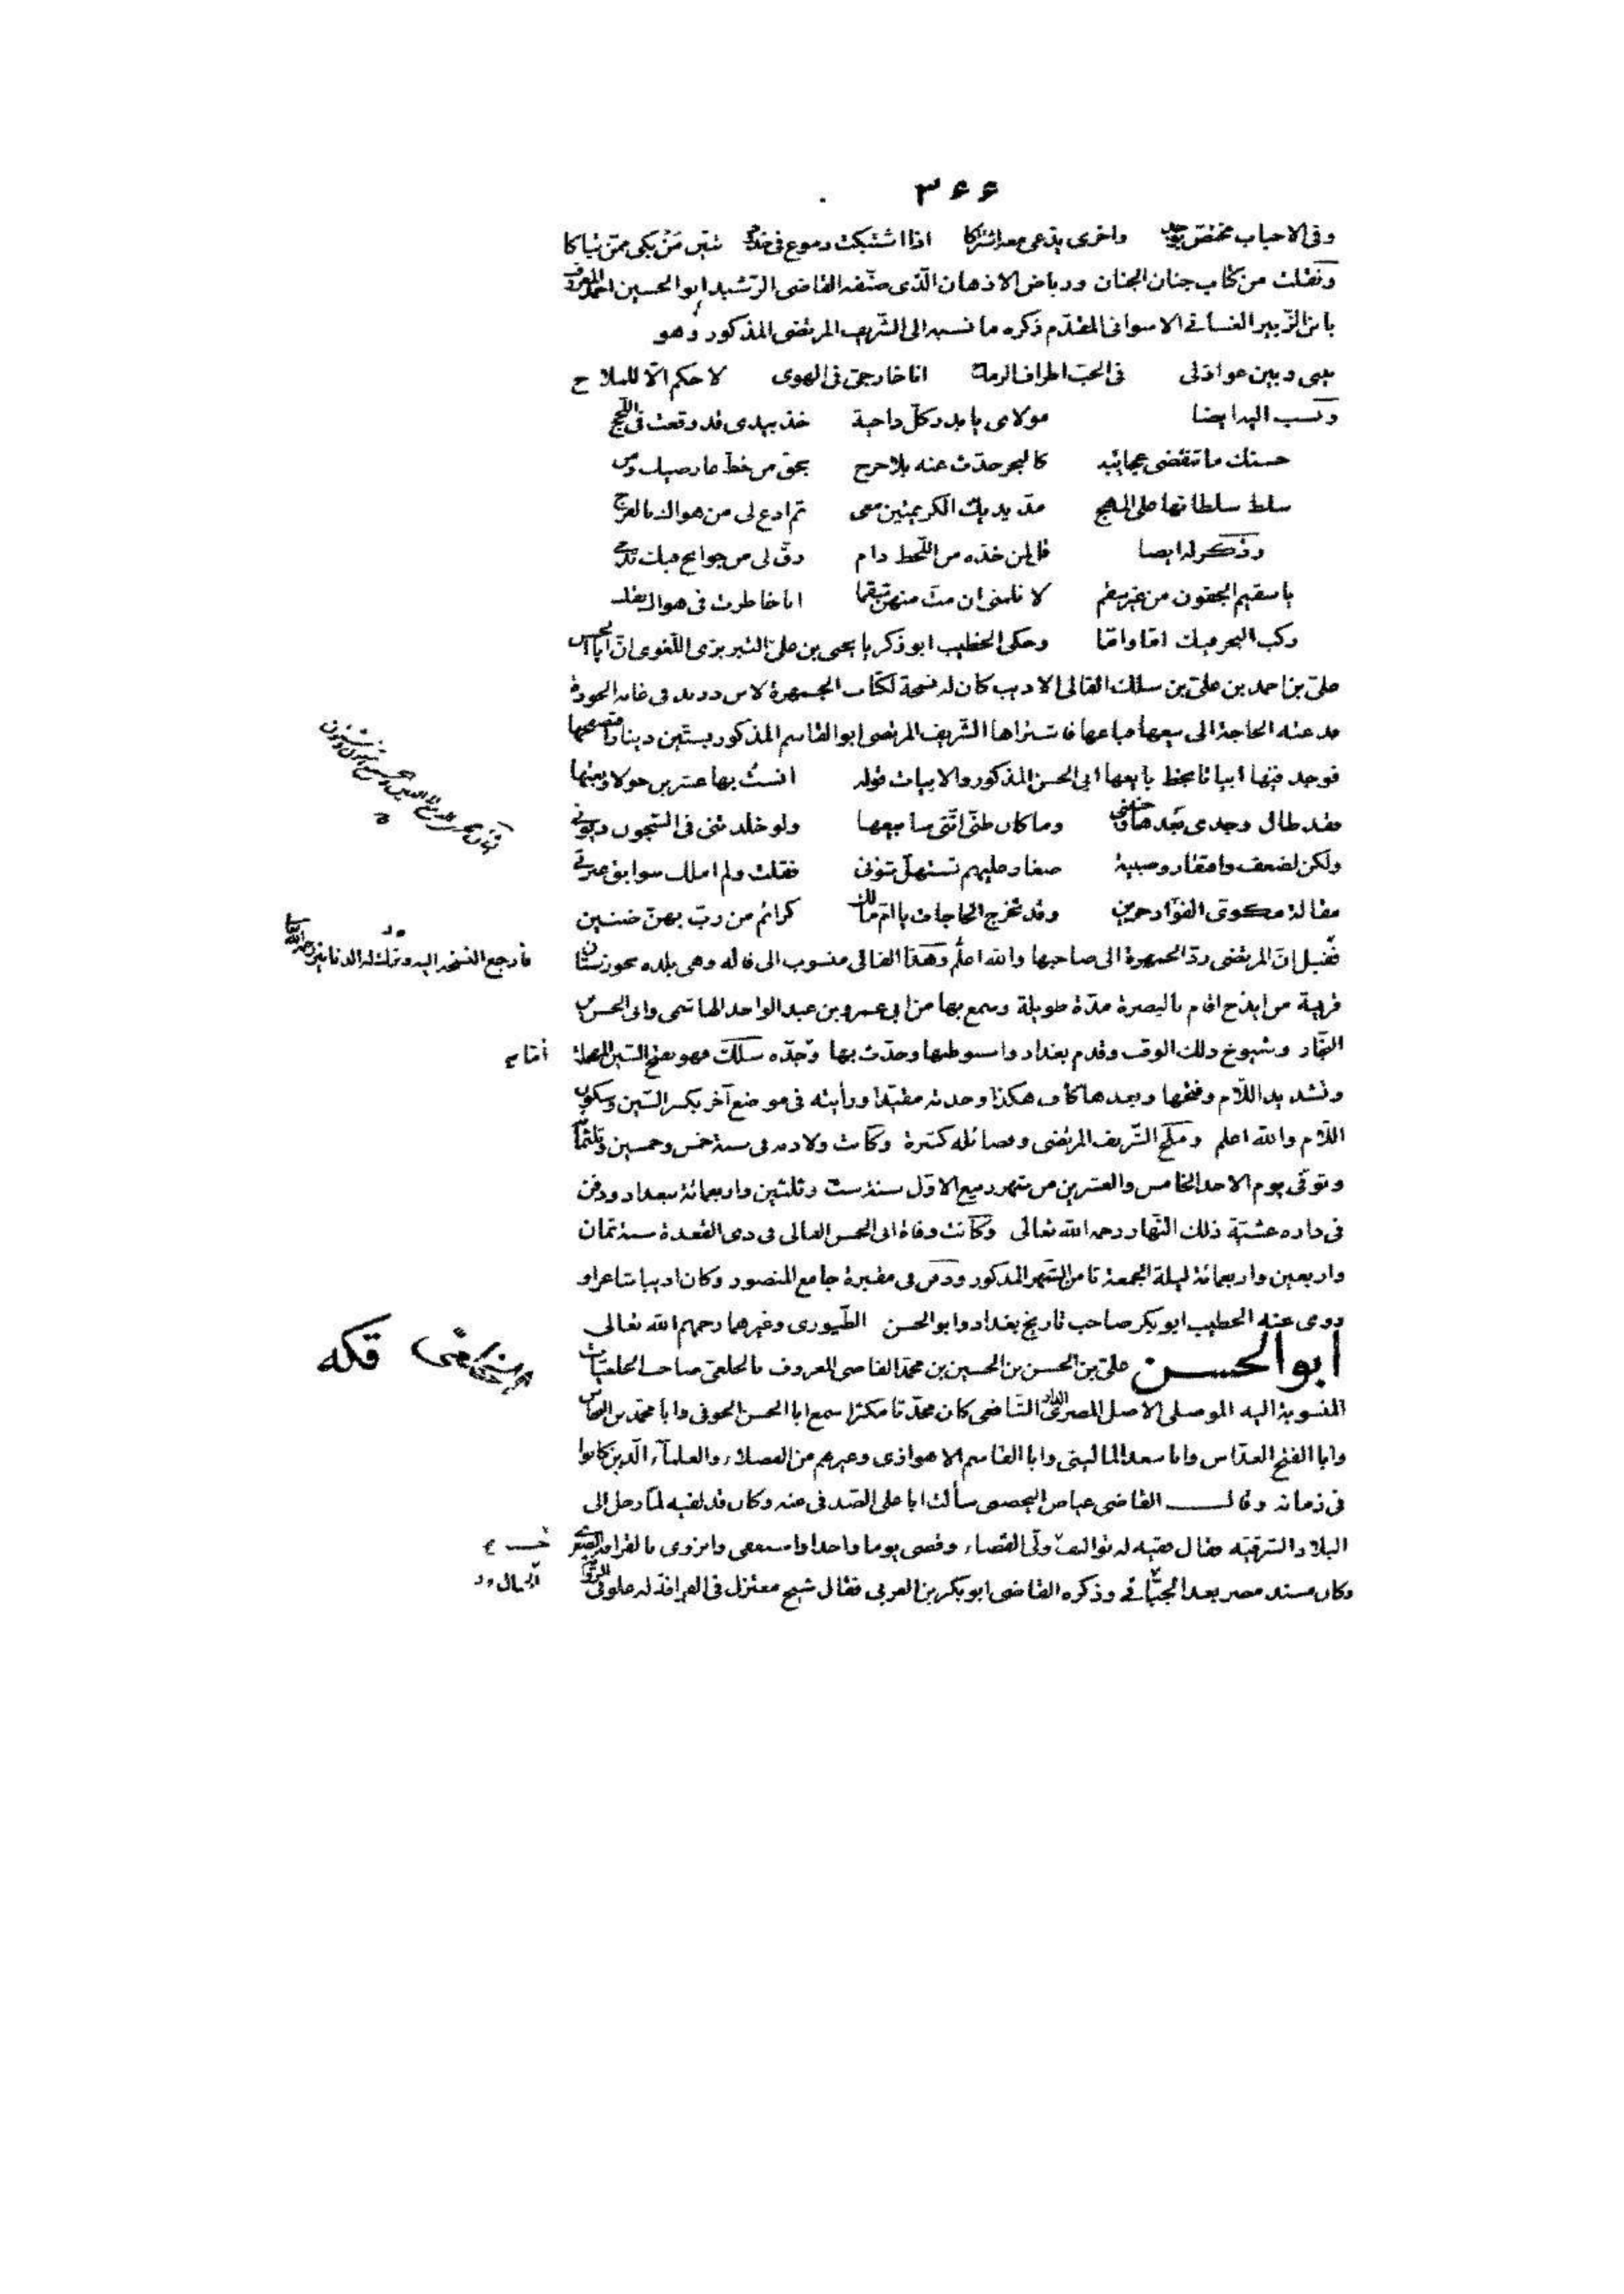 ٣٦٦
وفى الاحباب مختص بوجد واخرى يدعى معه اشتراكا اذا اشتبكت دموع فى خدود تبين من بكى ممن تباكا
ونقلت من كتاب جنان الجنان ورياض الاذهان الذى صنفه القاضى الرشيد ابو الحسين احمد المعروف
بابن الزبير الغسانى الاسوانى المقدم ذكره ما نسبه الى الشريف المرتضى المذكور وهو
بينى وبين عواذلى فى الحب اطراف الرماح انا خارجى فى الهوى لا حكم الا للملاح
ونسب اليه ايضا مولاى يا بدر كل داجية خذ بيدى قد وقعت فى اللجج
حسنك ما تنقضى عجائبه كالبحر حدث عنه بلا حرج بحق من خط عارضيك ومن
سلط سلطانها على المهج مد يديك الكريمتين معى ثم ادع لى من هواك بالفرج
وذكر له ايضا قل لمن خده من اللحظ دام رق لى من جوانح فيك تدمى
يا سقيم الجفون من غير سقم لا تلمنى ان مت منهن سقما انا خاطرت فى هواك بقلب
ركب البحر فيك اما واما وحكى الخطيب ابو زكريا يحيى بن على التبريزى اللغوى ان ابا الحسن
على بن احمد بن على بن سلك الفالى الاديب كان له نسخة لكتاب الجمهرة لابن دريد فى غاية الجودة
فدعته الحاجة الى بيعها فباعها فاشتراها الشريف المرتضى ابو القاسم المذكور بستين دينارا وتصفحها
فوجد فيها ابياتا بخط بايعها ابى الحسن المذكور والابيات قوله انست بها عشرين حولا وبعتها
فقد طال وجدى بعدها وحنينى وما كان ظنى اننى سابيعها ولو خلدتنى فى السجون ديونى
ولكن لضعف وافتقار وصبية صغار عليهم تستهل شؤنى فقلت ولم املك سوابق عبرتى
مقالة مكوى الفؤاد حزين وقد تخرج الحاجات يا ام مالك كرائم من رب بهن ضنين
فقيل ان المرتضى رد الجمهرة الى صاحبها والله اعلم وهذا الفالى منسوب الى فاله وهى بلده بخوزستان
فارجع النسخه اليه وترك له الدنانير رحمه الله تعالى
قريبة من ايذج اقام بالبصرة مدة طويلة وسمع بها من ابى عمرو بن عبد الواحد الهاشمى وابى الحسن
النجار وشيوخ ذلك الوقت وقدم بغداد واستوطنها وحدث بها وجده سلك فهو بفتح السين المهملة
وتشديد اللام وفتحها وبعدها كاف هكذا وجدته مقيدا ورأيته فى موضع آخر بكسر السين وسكون
اللام والله اعلم وملح الشريف المرتضى وفضائله كثيرة وكانت ولادته فى سنة خمس وخمسين وثلثمائة
وتوفى يوم الاحد الخامس والعشرين من شهر ربيع الاول سنة ست وثلثين واربعمائة ببغداد ودفن
فى داره عشية ذلك النهار رحمه الله تعالى وكانت وفاة ابى الحسن الفالى فى ذى القعدة سنة ثمان
واربعين واربعمائة ليلة الجمعة ثامن الشهر المذكور ودفن فى مقبرة جامع المنصور وكان اديبا شاعرا و
روى عنه الخطيب ابو بكر صاحب تاريخ بغداد وابو الحسن الطيورى وغيرهما رحمهم الله تعالى
ابو الحسن على بن الحسن بن الحسين بن محمد القاضى المعروف بالخلعى صاحب الخلعيات
قكه
المنسوبة اليه الموصلى الاصل المصرى الدار الشافعى كان محدثا مكثرا سمع ابا الحسن الحوفى وابا محمد بن النحاس
وابا الفتح العداس وابا سعد المالينى وابا القاسم الاهوازى وغيرهم من الفضلاء والعلمآء الذين كانوا
فى زمانه وقال القاضى عياض اليحصبى سألت ابا على الصدفى عنه وكان قد لقيه لما رحل الى
البلاد الشرقيه فقال فقيه له تواليف ولى القضاء وقضى يوما واحدا واستعفى وانزوى بالقرافة الصغرى
وكان مسند مصر بعد الحبال وذكره القاضى ابو بكر بن العربى فقال شيخ معتزل فى القرافة له علو فى الرواية